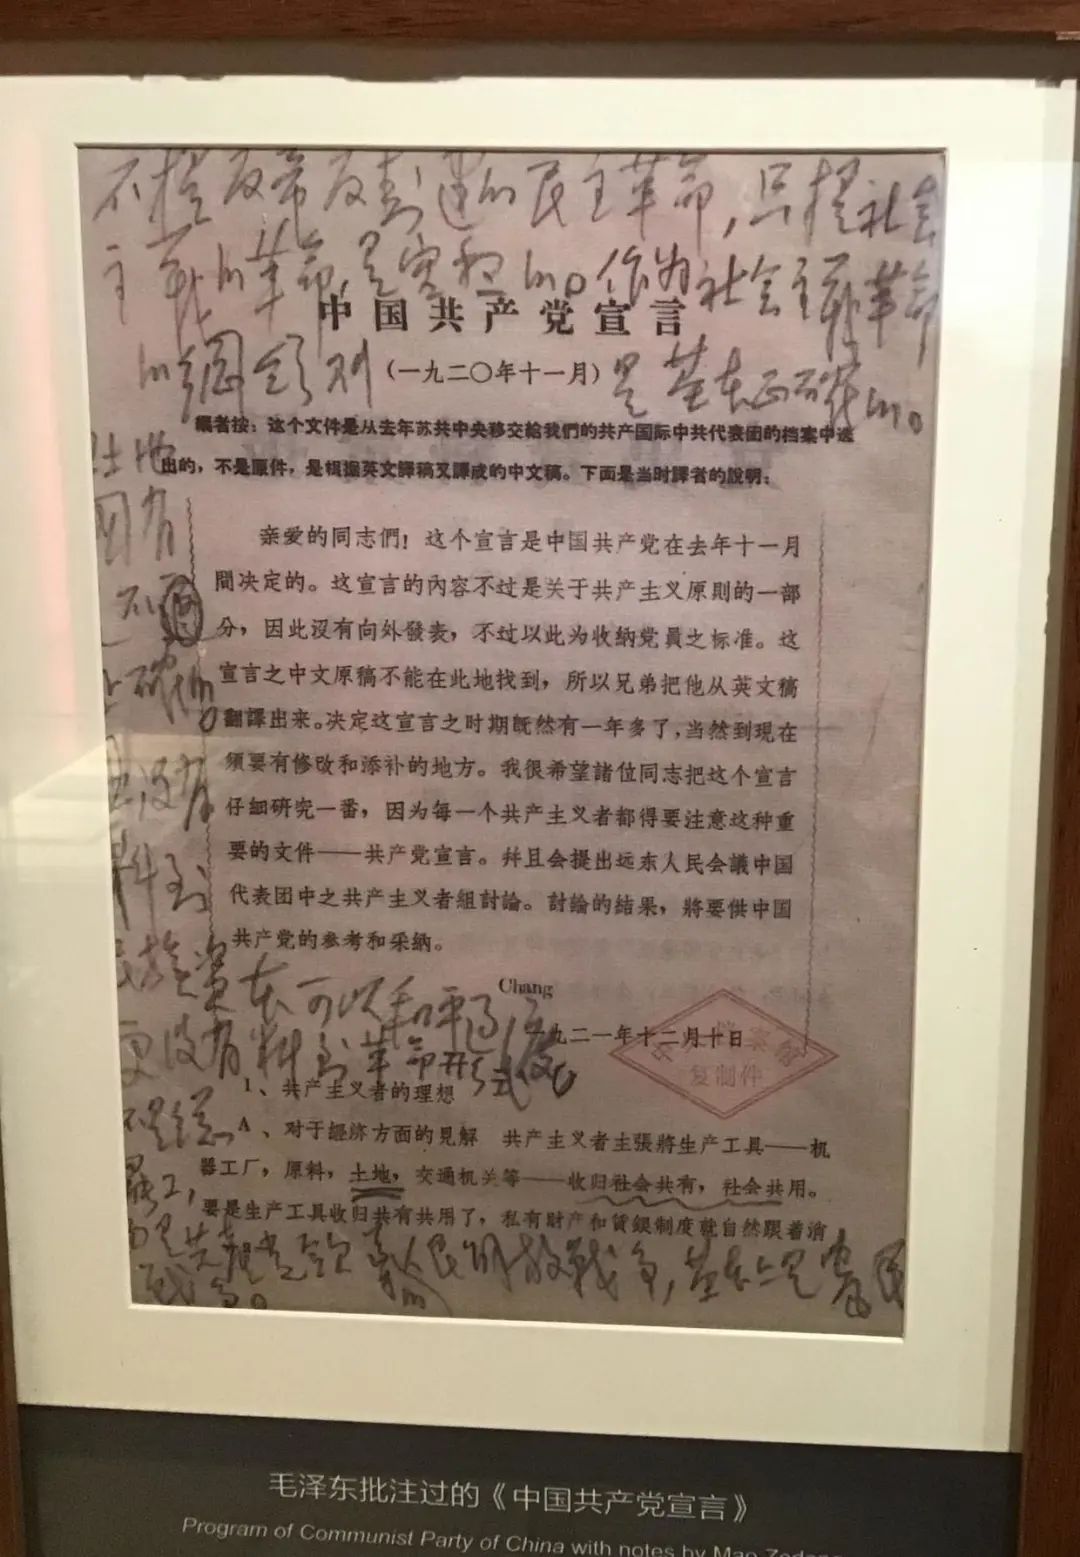 不提反帝反封建的民主革命，只提社会
主义的革命，是空想的。作为社会主义革命
的纲领则
是基本正确的。
中国共产党宣言
（一九二〇年十一月）
編者按：这个文件是从去年苏共中央移交給我們的共产国际中共代表团的档案中选
出的，不是原件，是根据英文譯稿又譯成的中文稿。下面是当时譯者的說明：
土地
国有
是不
正确的。
没有
料到
民族资本可以和平过渡。
更没有料到革命形式
不是总
罢工，
而是共产党领导的人民解放战争，基本上是农民
战争。
亲爱的同志們！这个宣言是中国共产党在去年十一月
間决定的。这宣言的內容不过是关于共产主义原則的一部
分，因此沒有向外發表，不过以此为收納党員之标准。这
宣言之中文原稿不能在此地找到，所以兄弟把他从英文稿
翻譯出来。决定这宣言之时期旣然有一年多了，当然到現在
須要有修改和添补的地方。我很希望諸位同志把这个宣言
仔細研究一番，因为每一个共产主义者都得要注意这种重
要的文件——共产党宣言。幷且会提出远东人民会議中国
代表团中之共产主义者組討論。討論的結果，將要供中国
共产党的参考和采納。
Chang
一九二一年十二月十日
复制件
1、共产主义者的理想
A、对于經济方面的見解 共产主义者主張將生产工具——机
器工厂，原料，土地，交通机关等——收归社会共有，社会共用。
要是生产工具收归共有共用了，私有財产和賃銀制度就自然跟着消
毛泽东批注过的《中国共产党宣言》
Program of Communist Party of China with notes by Mao Zedong